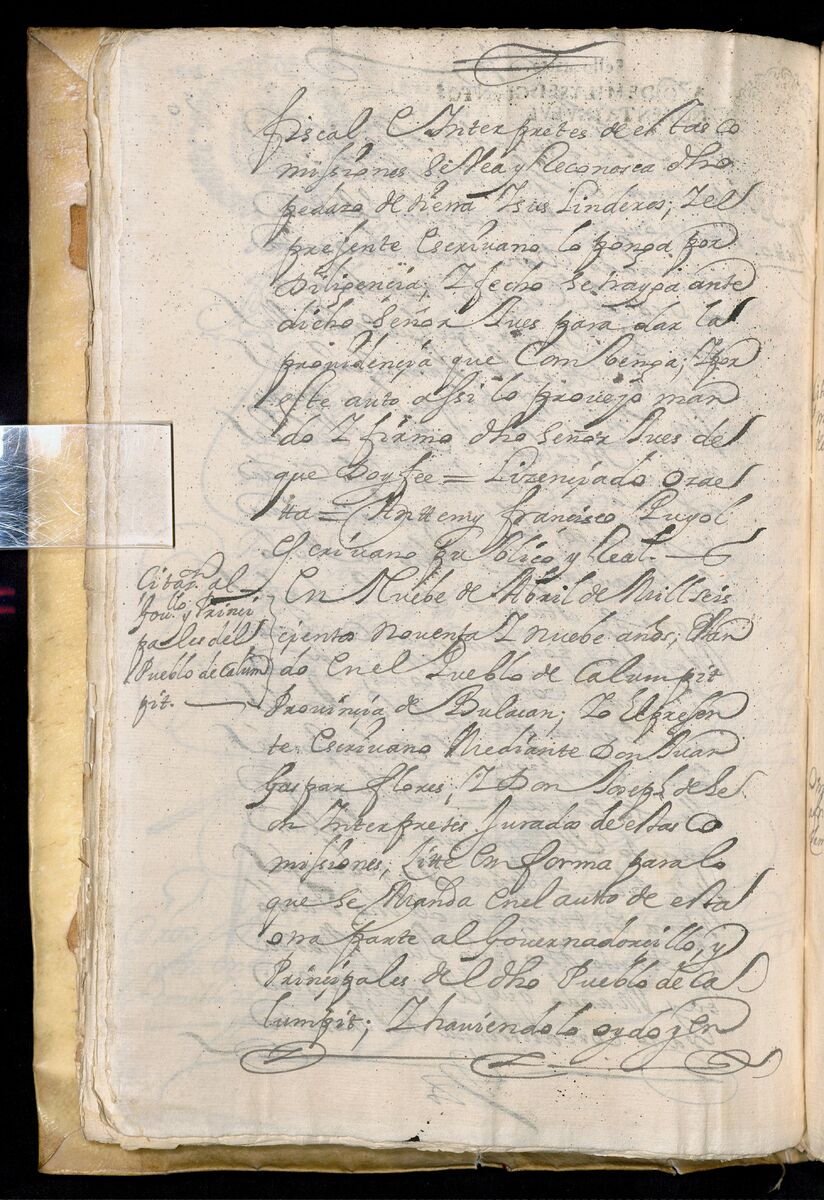 fiscal, E Interpretes de estas co
missiones se Vea y Reconosca dho
pedazo de tierra Y sus Linderos; Y el
presente Escrivano lo ponga por
Diligencia; Y fecho se trayga ante
dicho Señor Jues para dar la
providençia que Combenga; Y por
este auto assi lo proveyo man
do Y firmo dho Señor Jues de
que Doy fee = Lizençiado Ozae
tta = Anttemy Francisco Puyol
Escrivano publico y Real
Citazn. al
Govllo. y Princi
pales del
Pueblo de Calum
pit.
En Nuebe de Abril de Mill seis
çientos noventa Y nuebe años; estan
do En el Pueblo de Calumpit
Provinçia de Bulacan; Yo El presen
te Escrivano Mediante Don Juan
Gaspar flores, Y Don Joseph de Le
on Interpretes Jurados de estas Co
missiones, Citte En forma para lo
que se Manda En el autto de esta
otra parte al Governadorcillo, y
Prinçipales del dho Pueblo de Ca
lumpit; Y haviendolo oydo y En